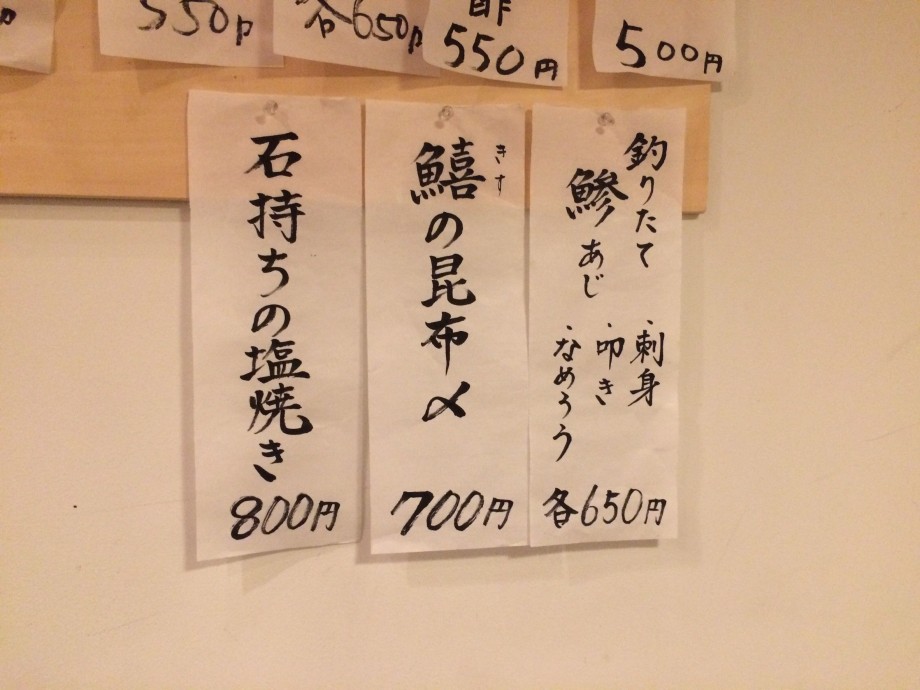 550円
各650円
酢
550円
500円
釣りたて
鯵あじ
・刺身
・叩き
・なめろう
各650円
きす
鱚の昆布〆
700円
石持ちの塩焼き
800円